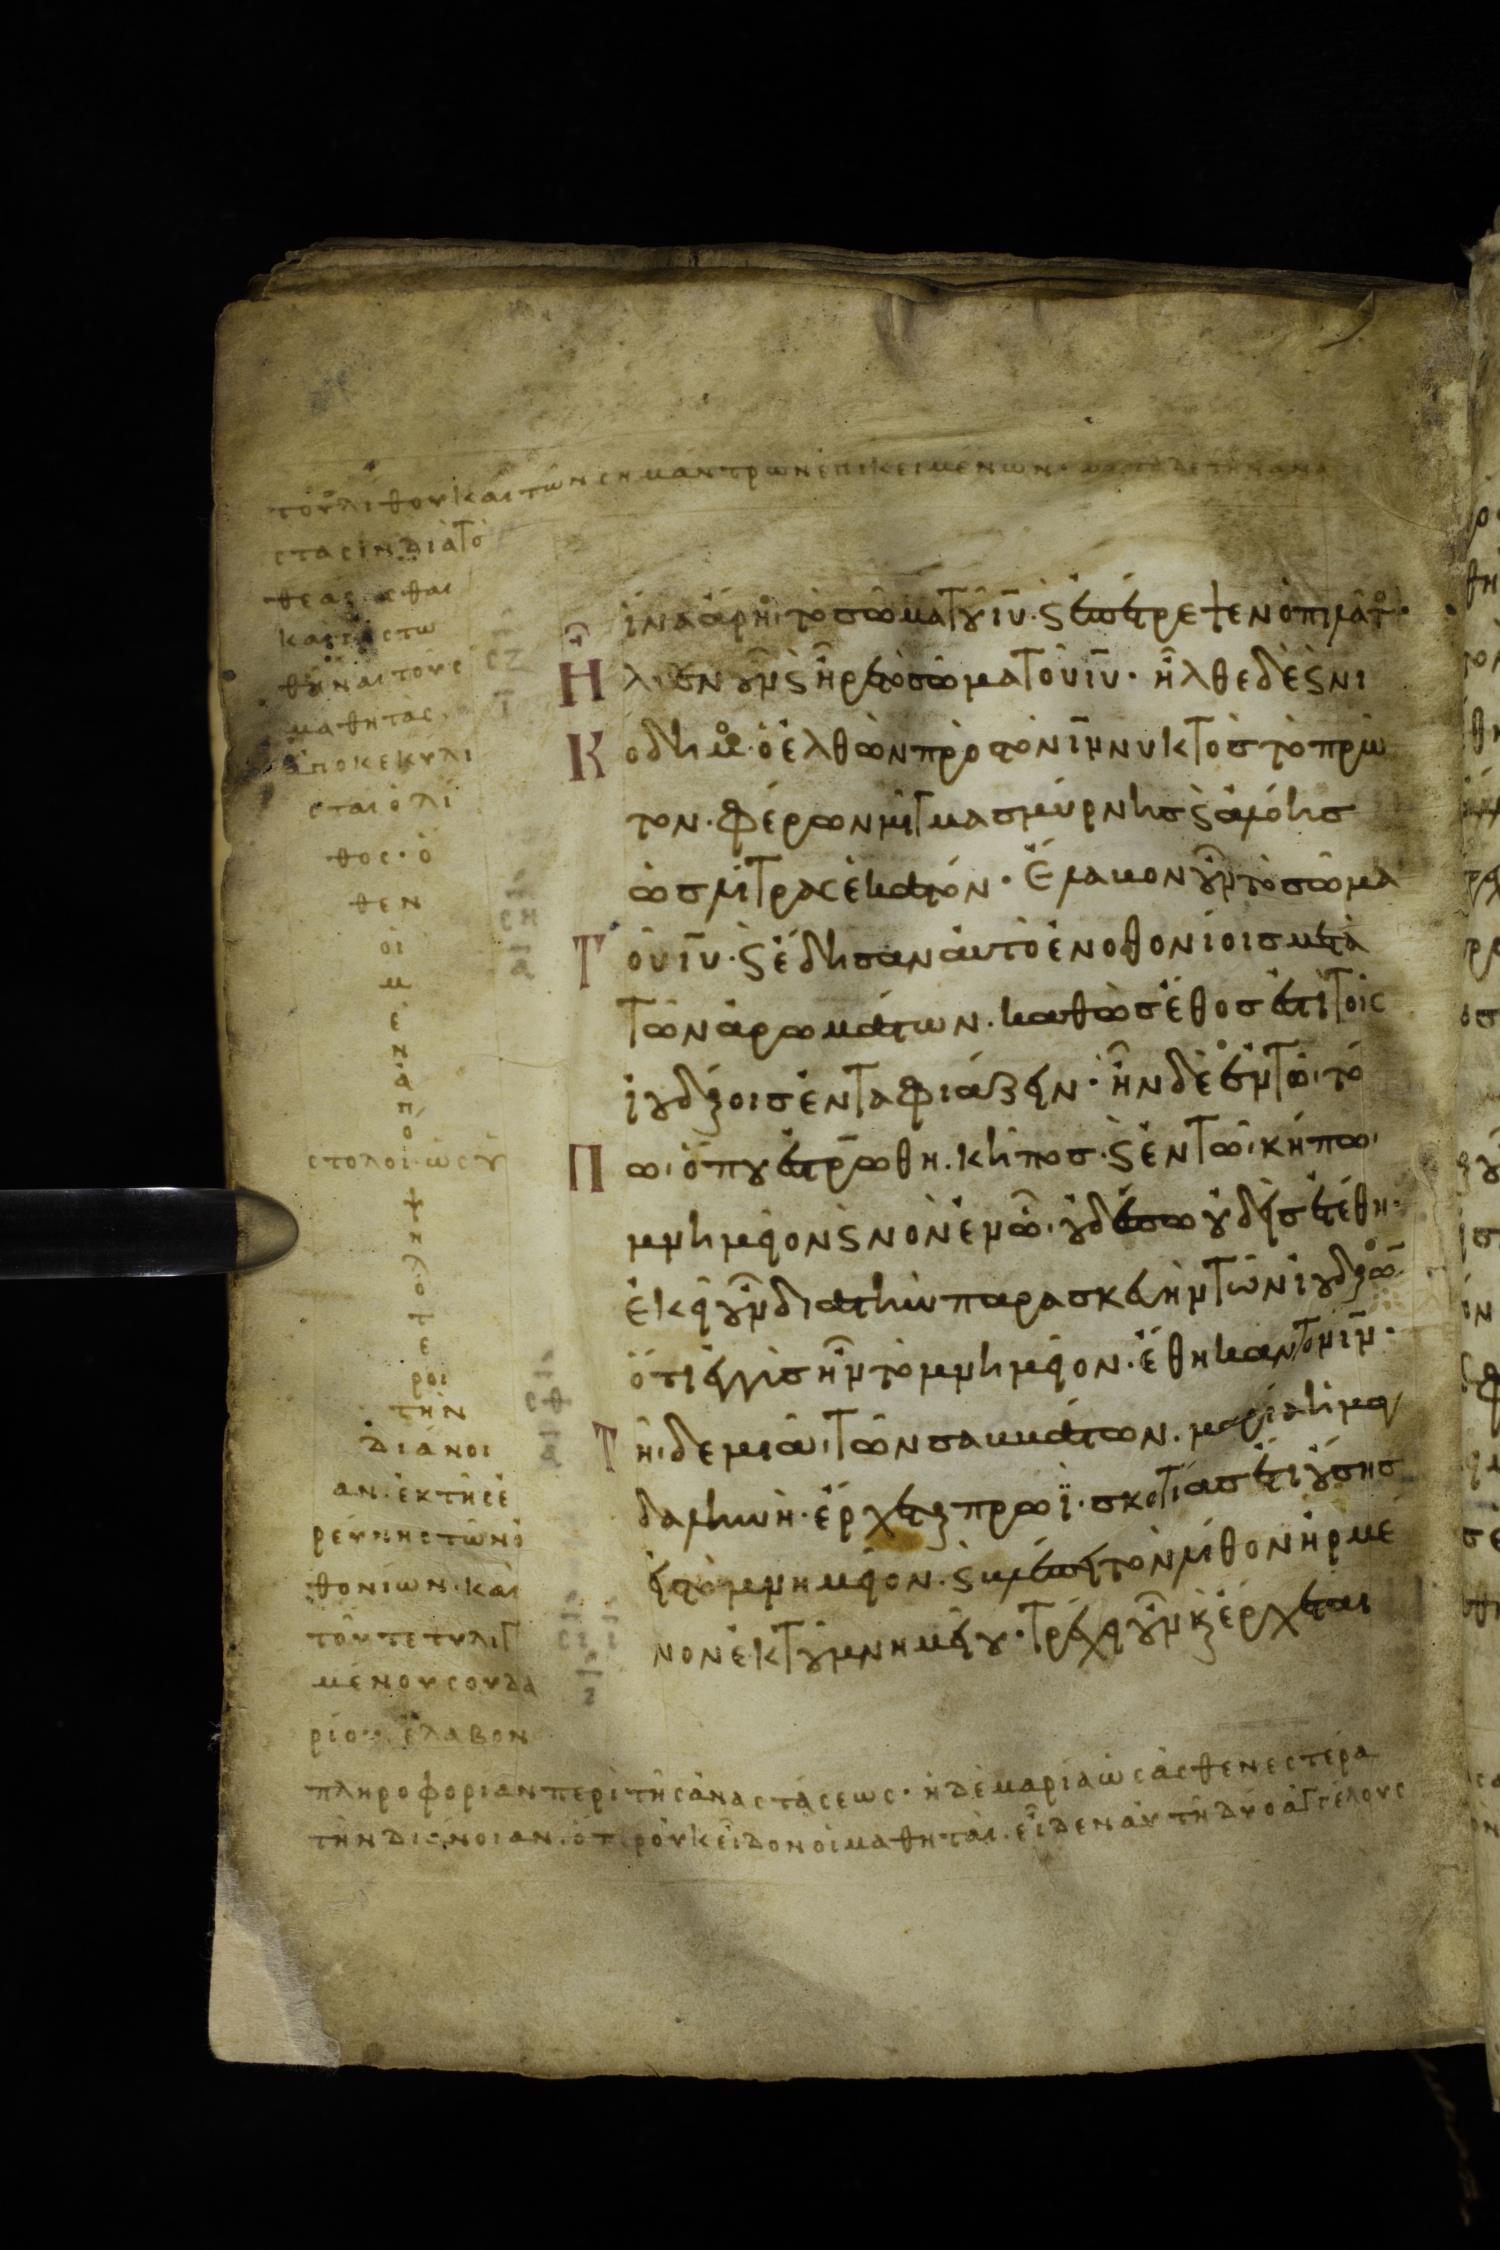 τοῦ λίθου καὶ τῶν σημάντρων ἐπικειμένων· μετὰ δὲ τὴν ἀνά
στασιν διὰ τὸ
θεαθ
καὶ πιστω
θῆναι τοὺς
μαθητὰς
ἀποκεκύλι
σται ὁ λί
θος· ὅ
θεν
οἱ
μ
ὲ
ν
ἀ
π
ό
στολοι· ὡς ὑ
ψ
η
λ
ό
τ
ε
ροι
τὴν
διάνοι
αν· ἐκ τῆς ἐ
ρεύνης τῶν ὀ
θονίων· καὶ
τοῦ τετυλιγ
μένου σουδα
ρίου· ἔλαβον
πληροφορίαν περὶ τῆς ἀναστάσεως· ἡ δὲ μαρία ὡς ἀσθενεστέρα
τὴν διάνοιαν· ὅπερ οὐκ εἶδον οἱ μαθηταί· εἶδεν αὐτὴ δύο ἀγγέλους
ἵνα ἄρῃ· τὸ σῶμα τοῦ ιῦ· ϛ ἐπέτρεψεν ὁ πιλᾶτος·
Ηλθεν οὖν ϛ ἦρε τὸ σῶμα τοῦ ιῦ· ἦλθε δὲ ϛ νι
Κόδημος· ὁ ἐλθὼν πρὸς τὸν ιν νυκτὸς τὸ πρῶ
τον· φέρων μίγμα σμύρνης ϛ ἀλόης
ὡς λίτρας ἑκατόν· Ἔλαβον οὖν τὸ σῶμα
Τοῦ ιῦ· ϛ ἔδησαν αὐτὸ ἐν ὀθονίοις μετὰ
τῶν ἀρωμάτων· καθὼς ἔθος ἐστὶ τοῖς
ἰουδαίοις ἐνταφιάζειν· ἦν δὲ ἐν τῷ τό
Πω· ὅπου ἐσταυρώθη· κῆπος· ϛ ἐν τῷ κήπω·
μνημεῖον καινὸν ἐν ᾧ· οὐδέπω οὐδεὶς ἐτέθη·
ἐκεῖ οὖν διὰ τὴν παρασκευὴν τῶν ἰουδαίων·
ὅτι ἐγγὺς ἦν τὸ μνημεῖον· ἔθηκαν τὸν ιν·
Τῆ δὲ μιᾶ· τῶν σαββάτων· μαρία ἡ μαγ
δαληνὴ· ἔρχεται πρωῒ· σκοτίας ἔτι οὔσης
εἰς τὸ μνημεῖον· ϛ βλέπει τὸν λίθον ἠρμέ
νον ἐκ τοῦ μνημείου· τρέχει οὖν ϗ ἔρχεται